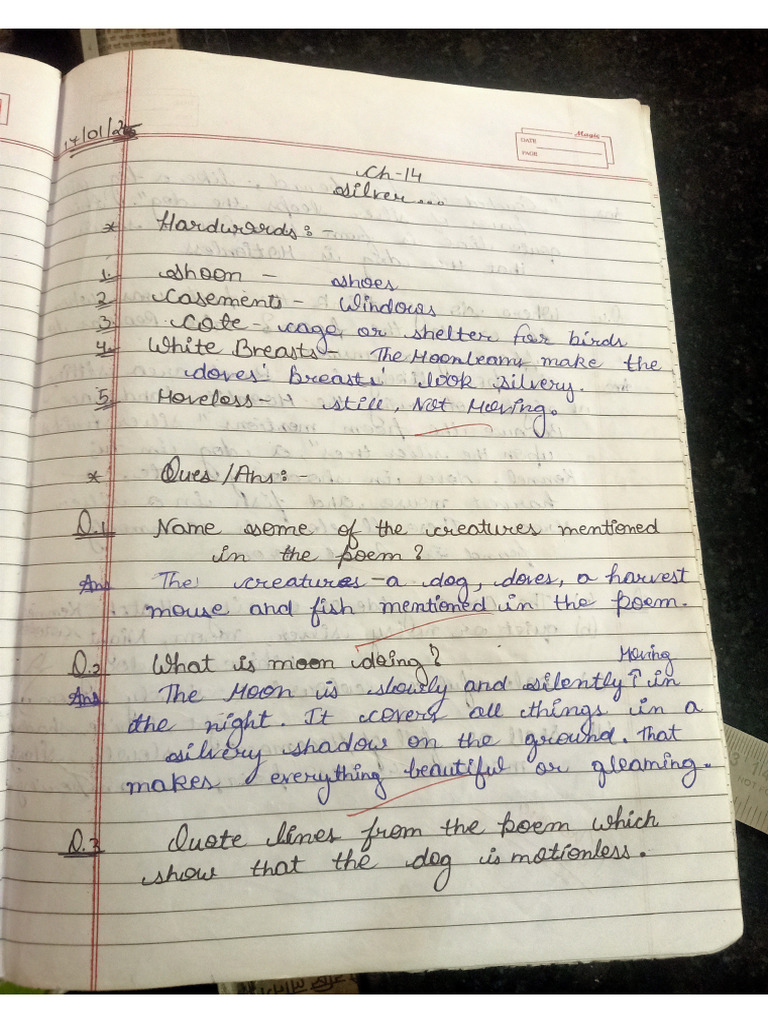 17/01/25
Magic
DATE
PAGE
Ch-14
Silver...
* Hardwards:-
1. Shoon - ashoes
2. Casement - Windows
3. Cote - cage or shelter for birds
4. White Breasts - The Moonbeams make the
doves' Breasts' look silvery.
5. Moveless - still, Not Moving.
* Ques/Ans:-
Q.1 Name some of the creatures mentioned
in the poem?
Ans The creatures - a dog, doves, a harvest
mouse and fish mentioned in the poem.
Q.2 What is moon doing?
Moving
Ans The Moon is slowly and silently ↑ in
the night. It covers all things in a
silvery shadow on the ground. That
makes everything beautiful or gleaming.
Q.3 Quote lines from the poem which
show that the dog is motionless.